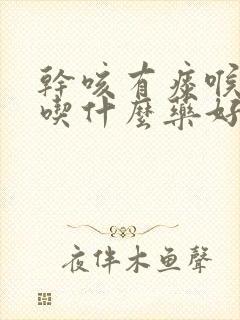 幹咳有痰喉
喫什麼藥好
夜伴木鱼聲